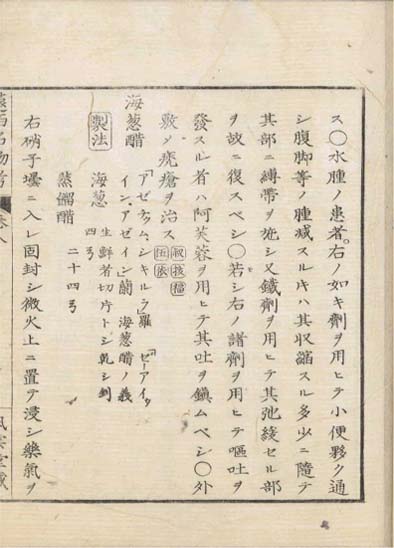 ス〇水腫ノ患者。右ノ如キ劑ヲ用ヒテ小便夥ク通
シ腹脚等ノ腫減スルトキハ其収縮スル多少ニ隨テ
其部ニ縛帶ヲ施シ又鐵劑ヲ用ヒテ其弛緩セル部
ヲ故ニ復スベシ〇若シ右ノ諸劑ヲ用ヒテ嘔吐ヲ
發スル者ハ阿芙蓉ヲ用ヒテ其吐ヲ鎭ムベシ〇外
敷メ疣瘡ヲ治ス
海葱醋 「アセキュム、シキルラ」羅 「ビーアイュ
イン、アゼイン」蘭 海葱醋ノ義
製法 海葱 生鮮者切片トシ乾シ剉
四弓
蒸餾醋 二十四弓
右硝子壜ニ入レ固封シ微火上ニ置テ浸シ藥氣ヲ